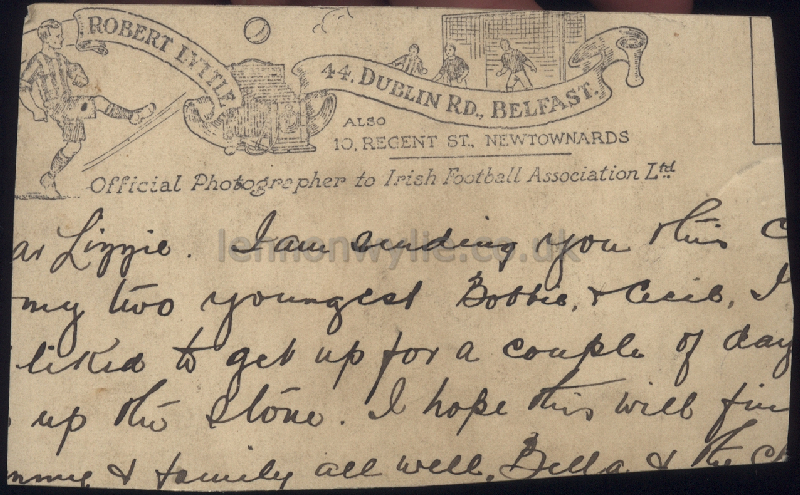 ROBERT LYTTLE
44, DUBLIN RD., BELFAST.
ALSO
10, REGENT ST., NEWTOWNARDS
Official Photographer to Irish Football Association Ltd
ar Lizzie. I am sending you this C
my two youngest Bobbie, & Cecil, I
liked to get up for a couple of day
up the stone. I hope this will fin
& family all well. Bella & the Ch
lennonwylie.co.uk